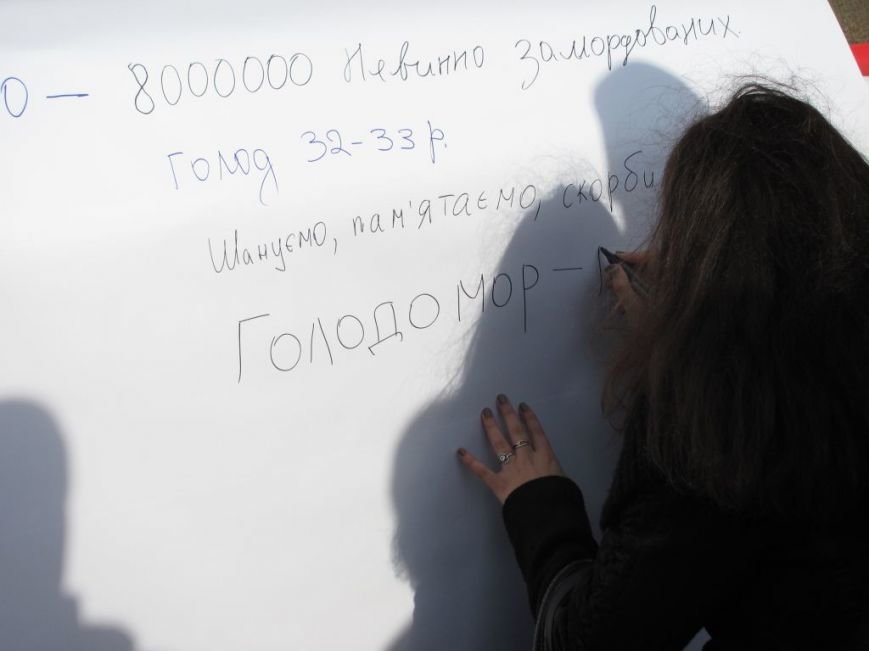 0 — 8000000 Невинно замордованих.
Голод 32-33 р.
Шануємо, пам'ятаємо, скорби
Голодомор —